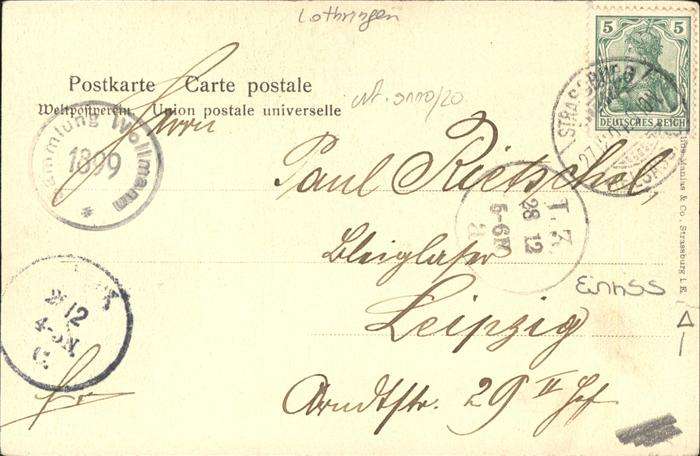 Lothringen
5 5
DEUTSCHES REICH
Postkarte Carte postale
Weltpostverein Union postale universelle
Nr. 3110/20
Herrn
Sammlung Wollmann
1899
STRASSBURG
Paul Rietschel,
T. Z.
28 12
5-6N
Bleiglaser
Leipzig
2 12
4-5N
Arndtstr. 29 II Hof
& Co., Strassburg i. E.